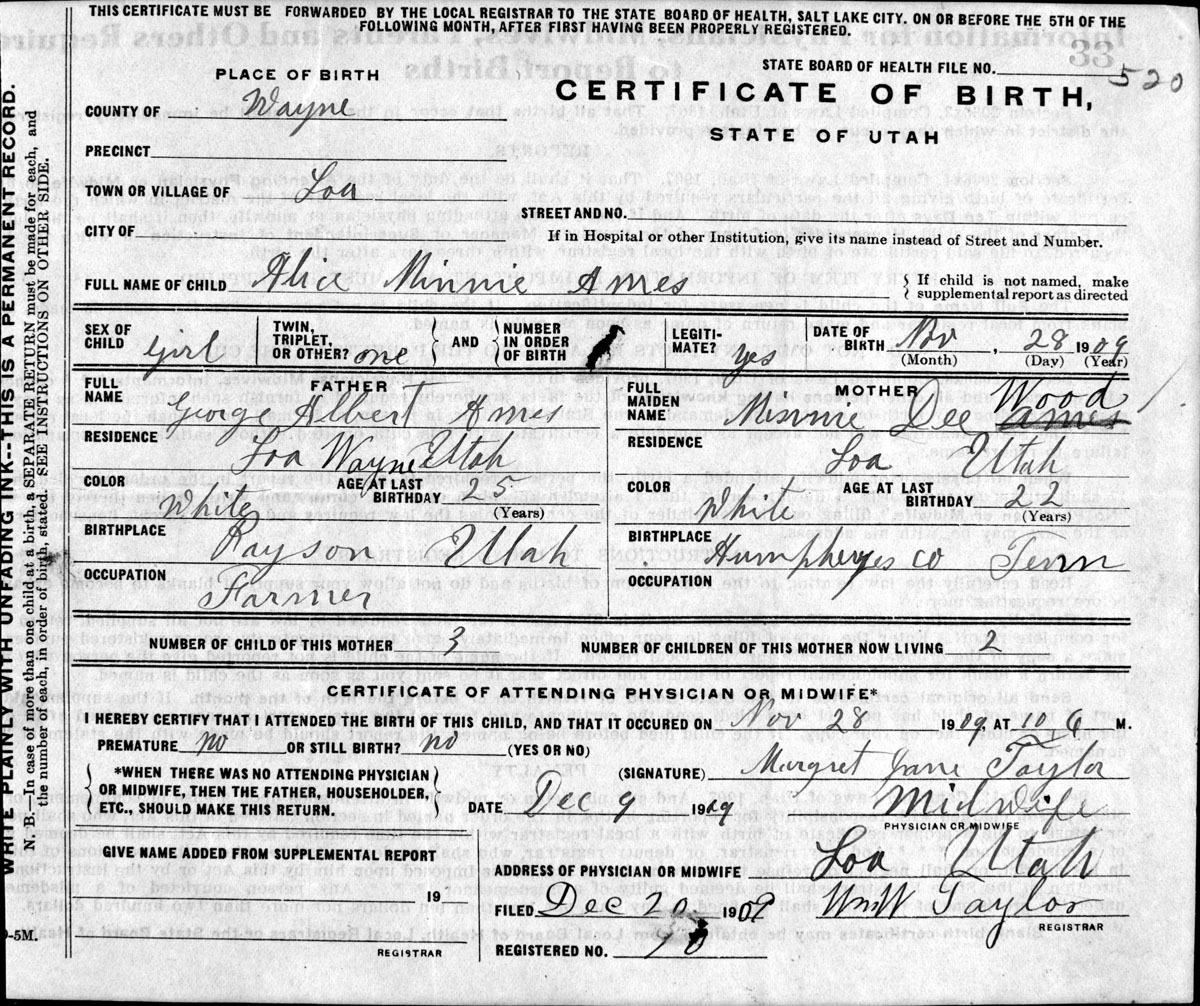 THIS CERTIFICATE MUST BE FORWARDED BY THE LOCAL REGISTRAR TO THE STATE BOARD OF HEALTH, SALT LAKE CITY. ON OR BEFORE THE 5TH OF THE
FOLLOWING MONTH, AFTER FIRST HAVING BEEN PROPERLY REGISTERED.
WRITE PLAINLY WITH UNFADING INK--THIS IS A PERMANENT RECORD.
N. B.--In case of more than one child at a birth, a SEPARATE RETURN must be made for each, and
the number of each, in order of birth, stated. SEE INSTRUCTIONS ON OTHER SIDE.
PLACE OF BIRTH
STATE BOARD OF HEALTH FILE NO. 520
33
CERTIFICATE OF BIRTH,
COUNTY OF Wayne
STATE OF UTAH
PRECINCT
TOWN OR VILLAGE OF Loa
STREET AND NO.
CITY OF
If in Hospital or other Institution, give its name instead of Street and Number.
FULL NAME OF CHILD Alice Minnie Ames
If child is not named, make
supplemental report as directed
SEX OF CHILD girl
TWIN, TRIPLET, OR OTHER? one
AND
NUMBER IN ORDER OF BIRTH
LEGITIMATE? yes
DATE OF BIRTH Nov, 28 1909
(Month) (Day) (Year)
FATHER
FULL NAME George Albert Ames
RESIDENCE Loa Wayne Utah
COLOR White
AGE AT LAST BIRTHDAY 25
(Years)
BIRTHPLACE Payson Utah
OCCUPATION Farmer
MOTHER
FULL MAIDEN NAME Minnie Dee Wood Ames
RESIDENCE Loa Utah
COLOR White
AGE AT LAST BIRTHDAY 22
(Years)
BIRTHPLACE Humphreyes co Tenn
OCCUPATION
NUMBER OF CHILD OF THIS MOTHER 3
NUMBER OF CHILDREN OF THIS MOTHER NOW LIVING 2
CERTIFICATE OF ATTENDING PHYSICIAN OR MIDWIFE*
I HEREBY CERTIFY THAT I ATTENDED THE BIRTH OF THIS CHILD, AND THAT IT OCCURED ON Nov 28 1909 AT 10 M.
PREMATURE no OR STILL BIRTH? no (YES OR NO)
*WHEN THERE WAS NO ATTENDING PHYSICIAN
OR MIDWIFE, THEN THE FATHER, HOUSEHOLDER,
ETC., SHOULD MAKE THIS RETURN.
(SIGNATURE) Margret Jane Taylor
DATE Dec 9 1909
Midwife
PHYSICIAN OR MIDWIFE
GIVE NAME ADDED FROM SUPPLEMENTAL REPORT
ADDRESS OF PHYSICIAN OR MIDWIFE Loa Utah
19
FILED Dec 20 1909
Wm W Taylor
REGISTRAR
-5M.
REGISTRAR
REGISTERED NO.